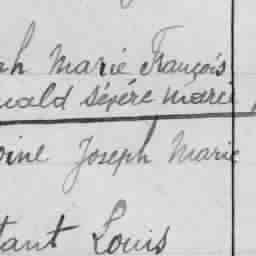 ph Marie François
wald Sévère Marie
oine Joseph Marie
tant Louis